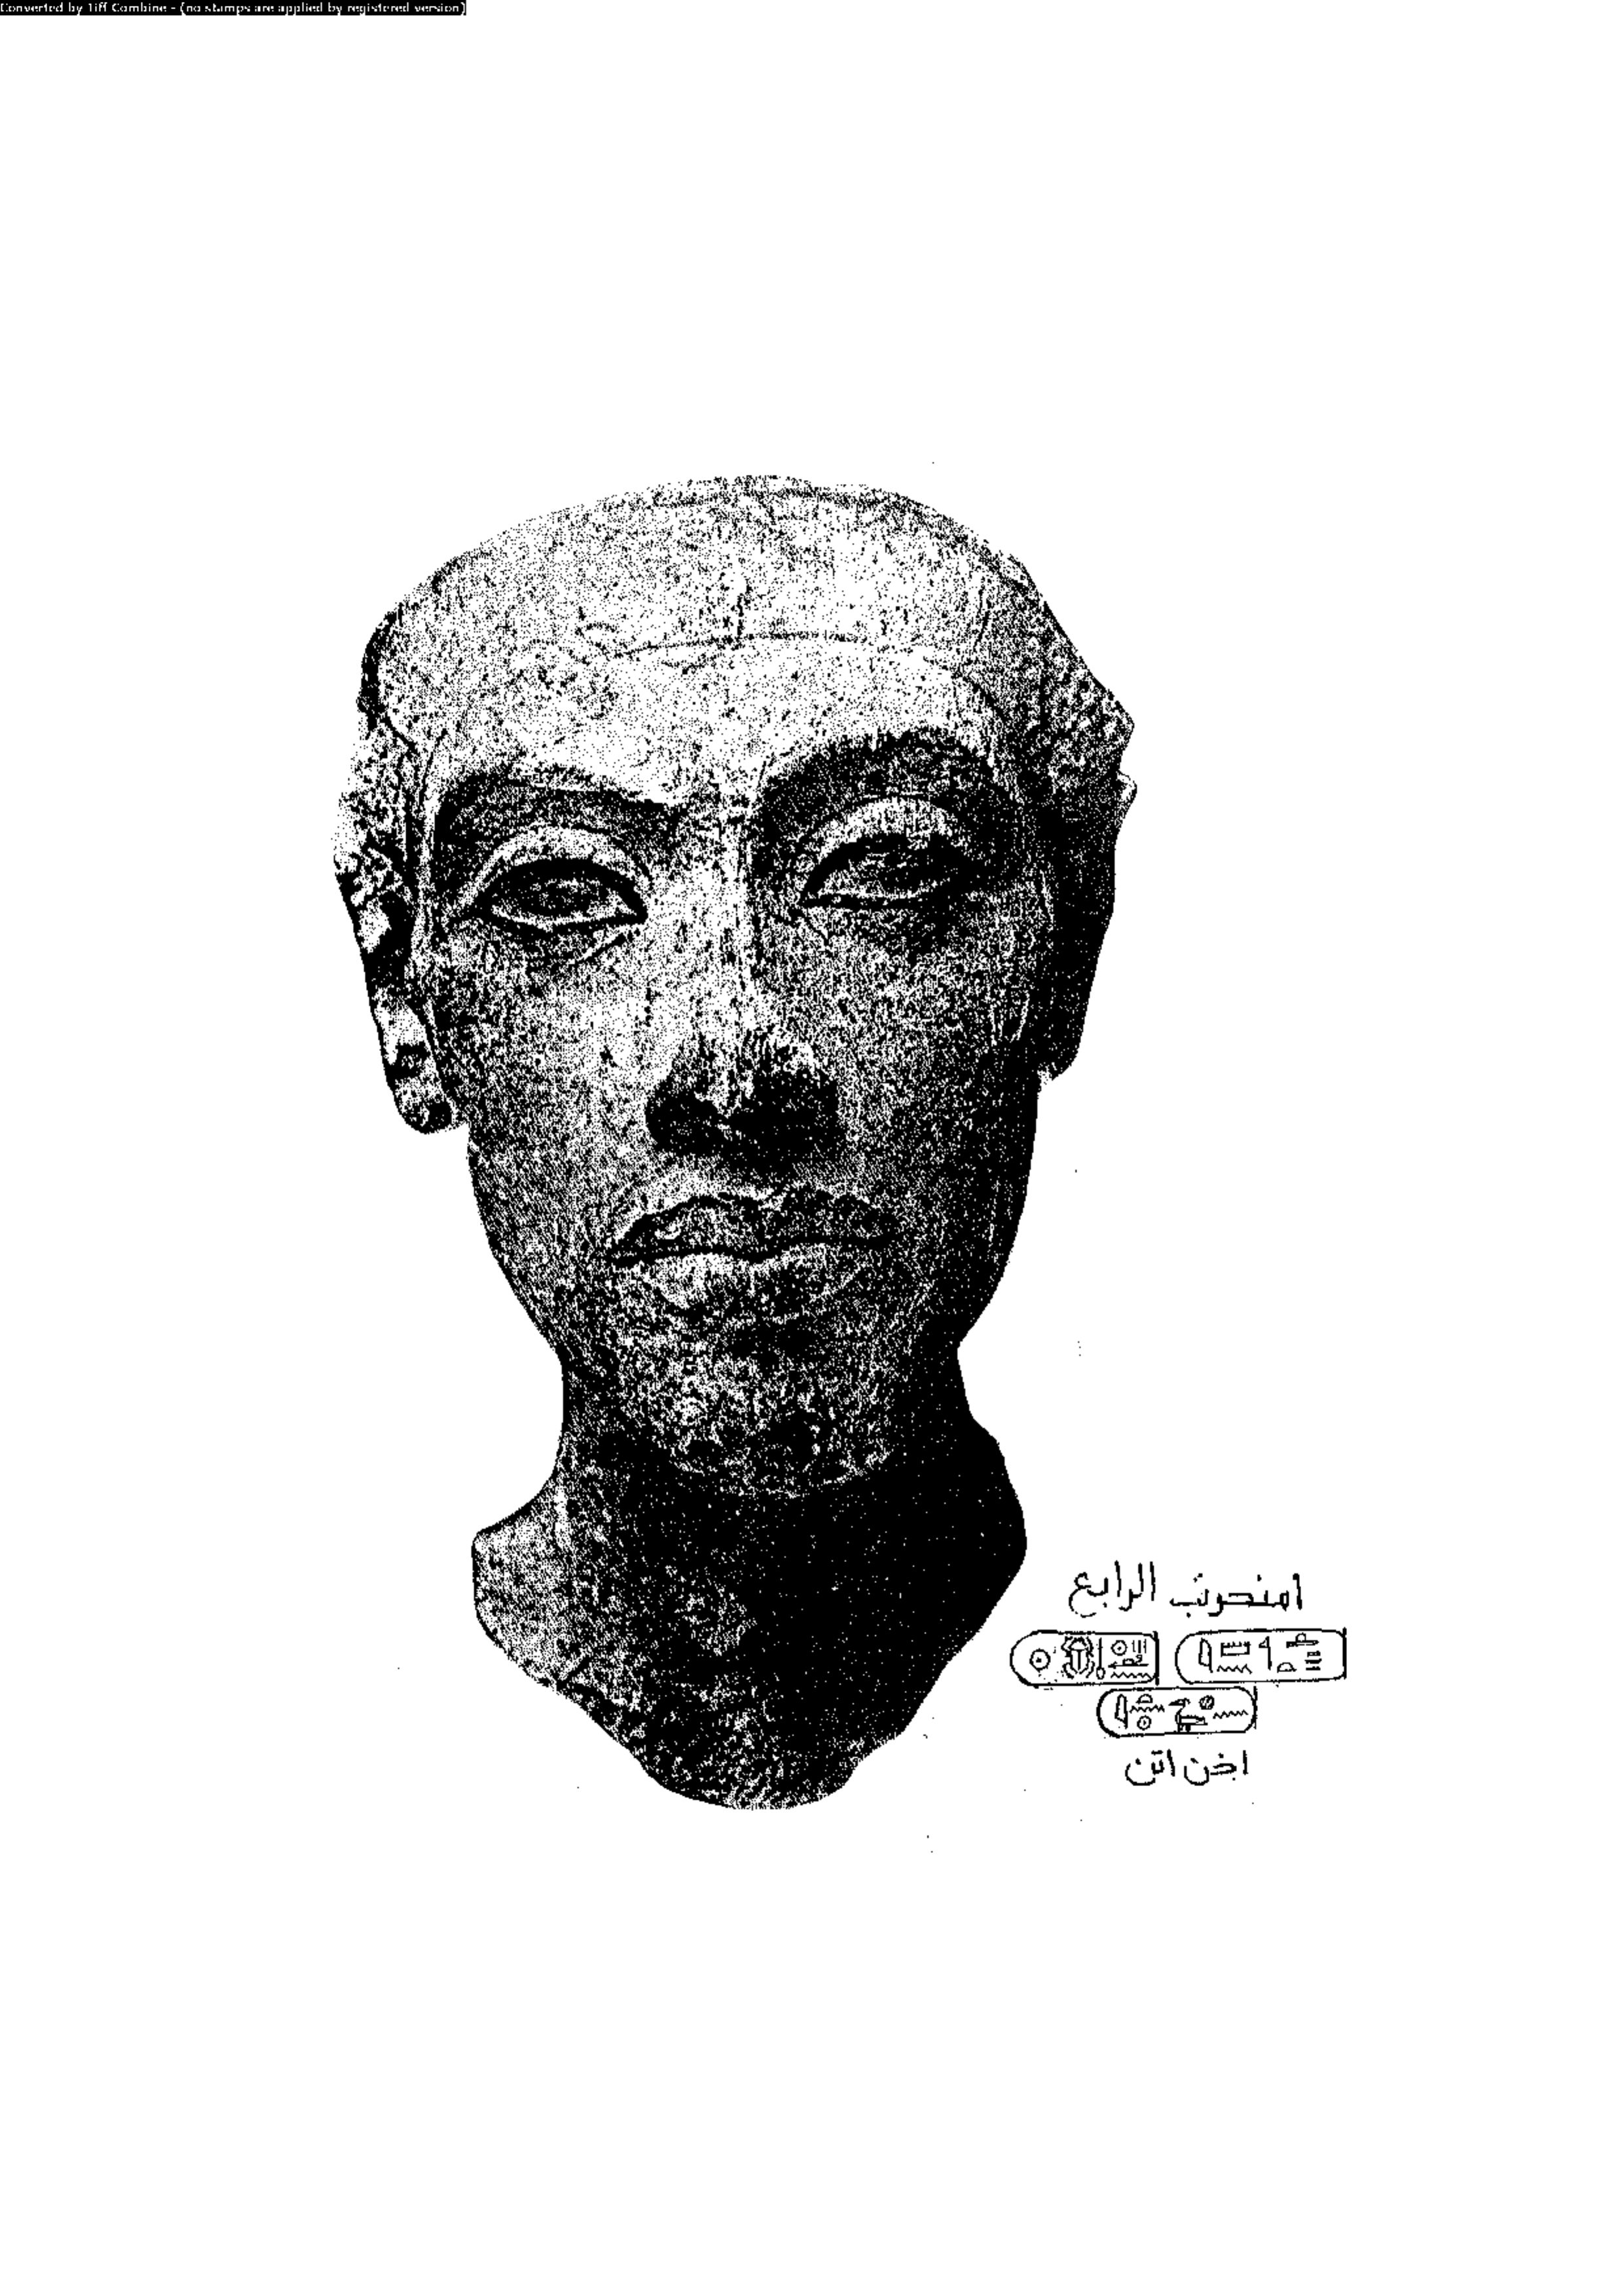 Converted by Tiff Combine - (no stamps are applied by registered version)
امنحوتب الرابع
اخن اتن